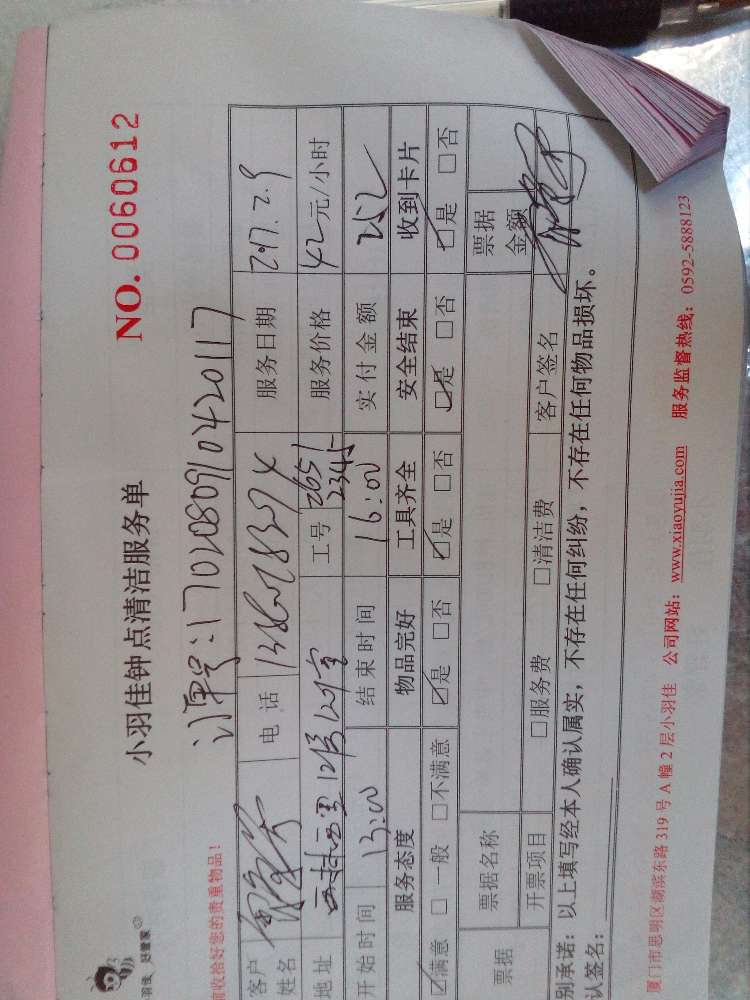 小羽佳钟点清洁服务单
NO. 0060612
订单号:1702080910420117
前收拾好您的贵重物品!
客户姓名 电话 服务日期 2017.2.9
地址 工号 2651 2345 服务价格 42元/小时
开始时间 13:00 结束时间 16:00 实付金额 252
服务态度 物品完好 工具齐全 安全结束 收到卡片
☑满意 □一般 □不满意 ☑是 □否 ☑是 □否 ☑是 □否 ☑是 □否
票据 票据名称 票据金额
开票项目 □服务费 □清洁费 客户签名
别承诺:以上填写经本人确认属实,不存在任何纠纷,不存在任何物品损坏。
认签名:
厦门市思明区湖滨东路319号A幢2层小羽佳 公司网站:www.xiaoyujia.com 服务监督热线:0592-5888123